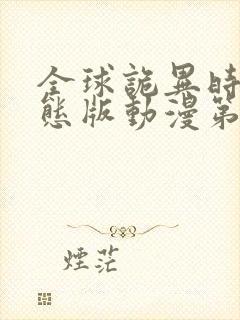 全球詭異時
態版動漫第
煙茫